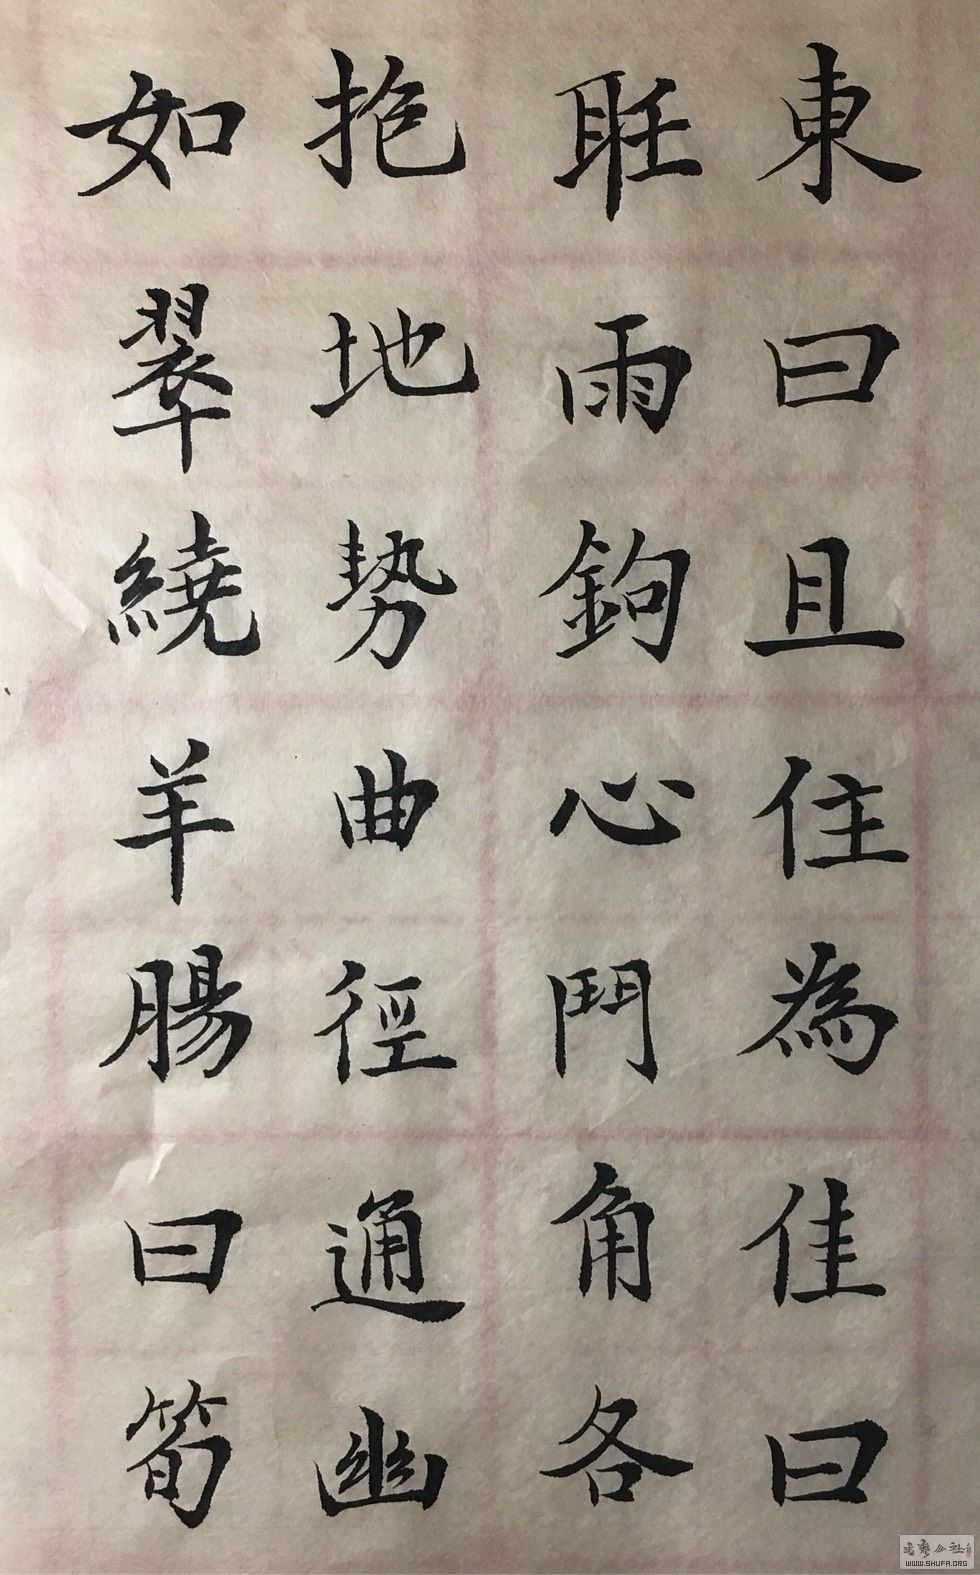 東曰且住為佳曰
眂雨鉤心鬥角各
抱地勢曲徑通幽
如翠繞羊腸曰筍
書藝公社
WWW.SHUFA.ORG